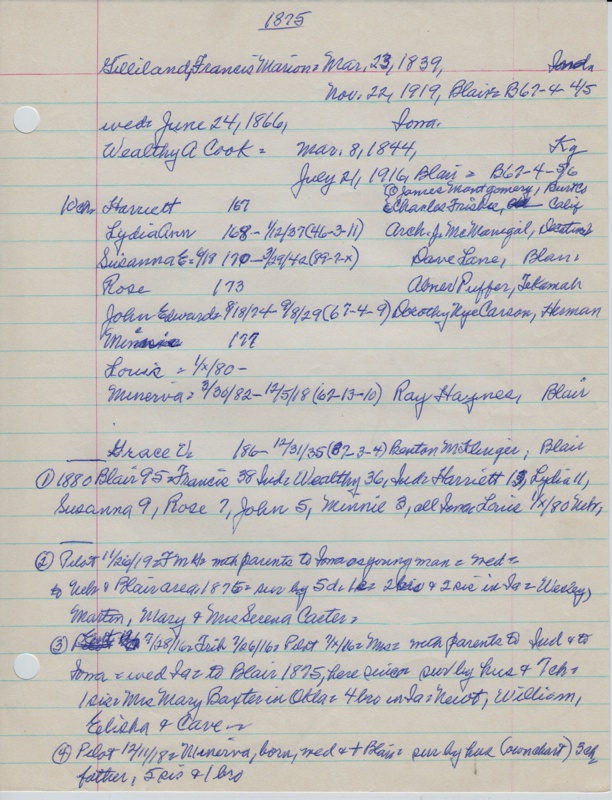 1875
Gilliland, Francis Marion = Mar. 23, 1839, Ind.
Nov. 22, 1919, Blair = B67-4-4/5
wed = June 24, 1866, Iowa.
Wealthy A Cook = Mar. 8, 1844, Ky
July 21, 1916, Blair = B67-4-5/6
① James Montgomery, Burt Co
10 ch Harriett 167 ② Charles Frisbie, Calif
Lydia Ann 168 - 1/12/37 (46-3-11) Arch. J. McManigal,
Susanna E = 9/18 170 - 3/29/42 (89-7-x) Dave Lane, Blair
Rose 173 Abner Puffer, Tekamah
John Edward = 8/18/74 - 9/8/29 (67-4-9) Dorothy Nye Carson, Herman
Minnie 177
Louis = 1/x/80 -
Minerva = 3/30/82 - 12/5/18 (62-13-10) Ray Haynes, Blair
Grace V. 186 - 12/31/35 (87-3-4) Benton Blair
① 1880 Blair 95 = Francis 38 Ind = Wealthy 36, Ind = Harriett 13, Lydia 11,
Susanna 9, Rose 7, John 5, Minnie 3, all Iowa = Louis 1/x/80 Nebr,
② Pilot 11/26/19 = F M = with parents to Iowa as young man = wed =
to Nebr & Blair area 1875 = sur by 5 d 1 s = 2 bro & 2 sis in Ia = Wesley,
Martin, Mary & Mrs Serena Carter =
③ 7/28/16 = Trib 7/26/16 = Pilot 7/x/16 = Mrs = with parents to Ind & to
Iowa = wed Ia = to Blair 1875, here since = sur by hus & 7 ch =
1 sis = Mrs Mary Baxter in Okla = 4 bro in Ia = Newt, William,
Elisha & Cave =
④ Pilot 12/11/18 = Minerva, born, wed & + Blair = sur by hus (own chart) 3 ch
father, 5 sis & 1 bro